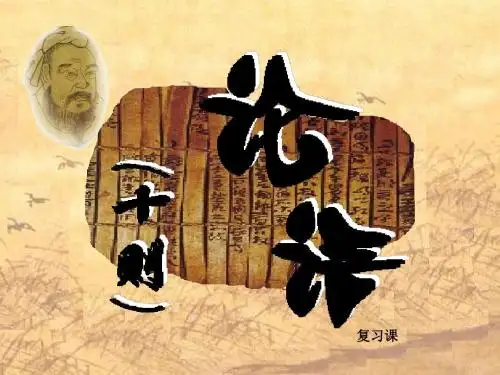 论语
（十则）
复习课